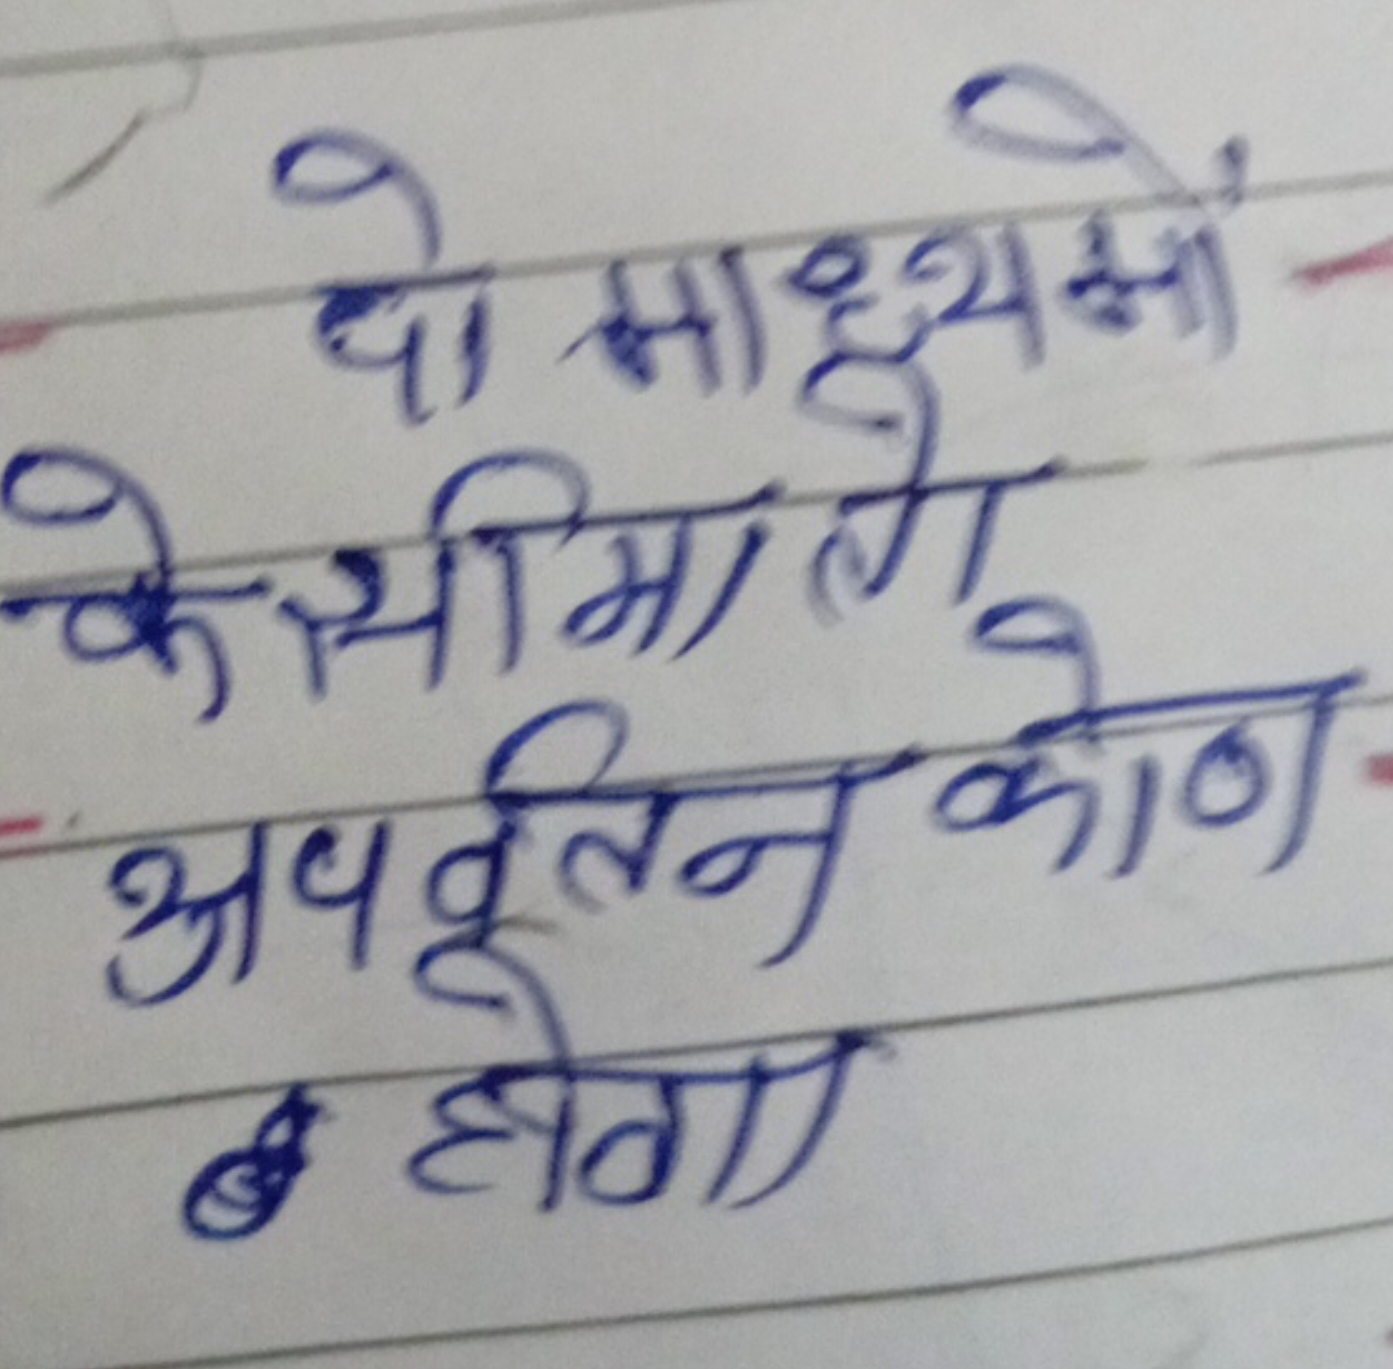 दो माध्यमों
के सीमा तो
अपर्वूतन कोण
होगा